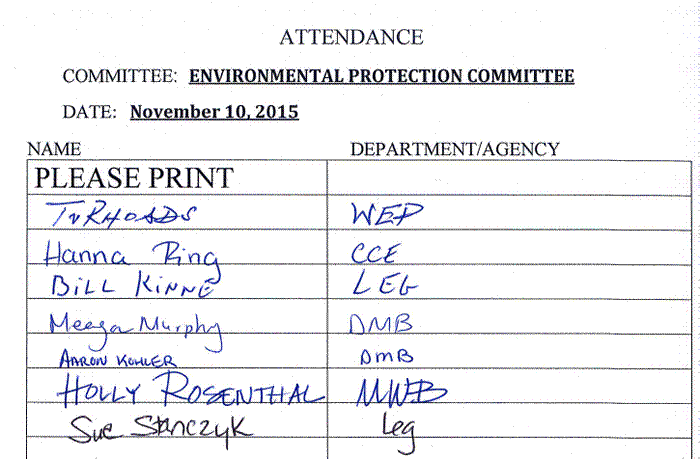 ATTENDANCE
COMMITTEE: ENVIRONMENTAL PROTECTION COMMITTEE
DATE: November 10, 2015
NAME DEPARTMENT/AGENCY
PLEASE PRINT
RHOADS WEP
Hanna Ring CCE
BILL KINNE LEG
Meega Murphy DMB
AARON KOHLER DMB
HOLLY ROSENTHAL MWB
Sue Stanczyk Leg